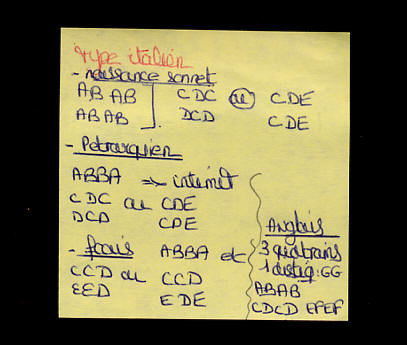 type italien
- naissance sonnet
ABAB CDC ou CDE
ABAB DCD CDE
- Pétrarquien
ABBA → internet
CDC ou CDE
DCD CDE
- fçais ABBA etc
CCD ou CCD
EED EDE
Anglais
3 quatrains
1 distiq: GG
ABAB
CDCD EFEF